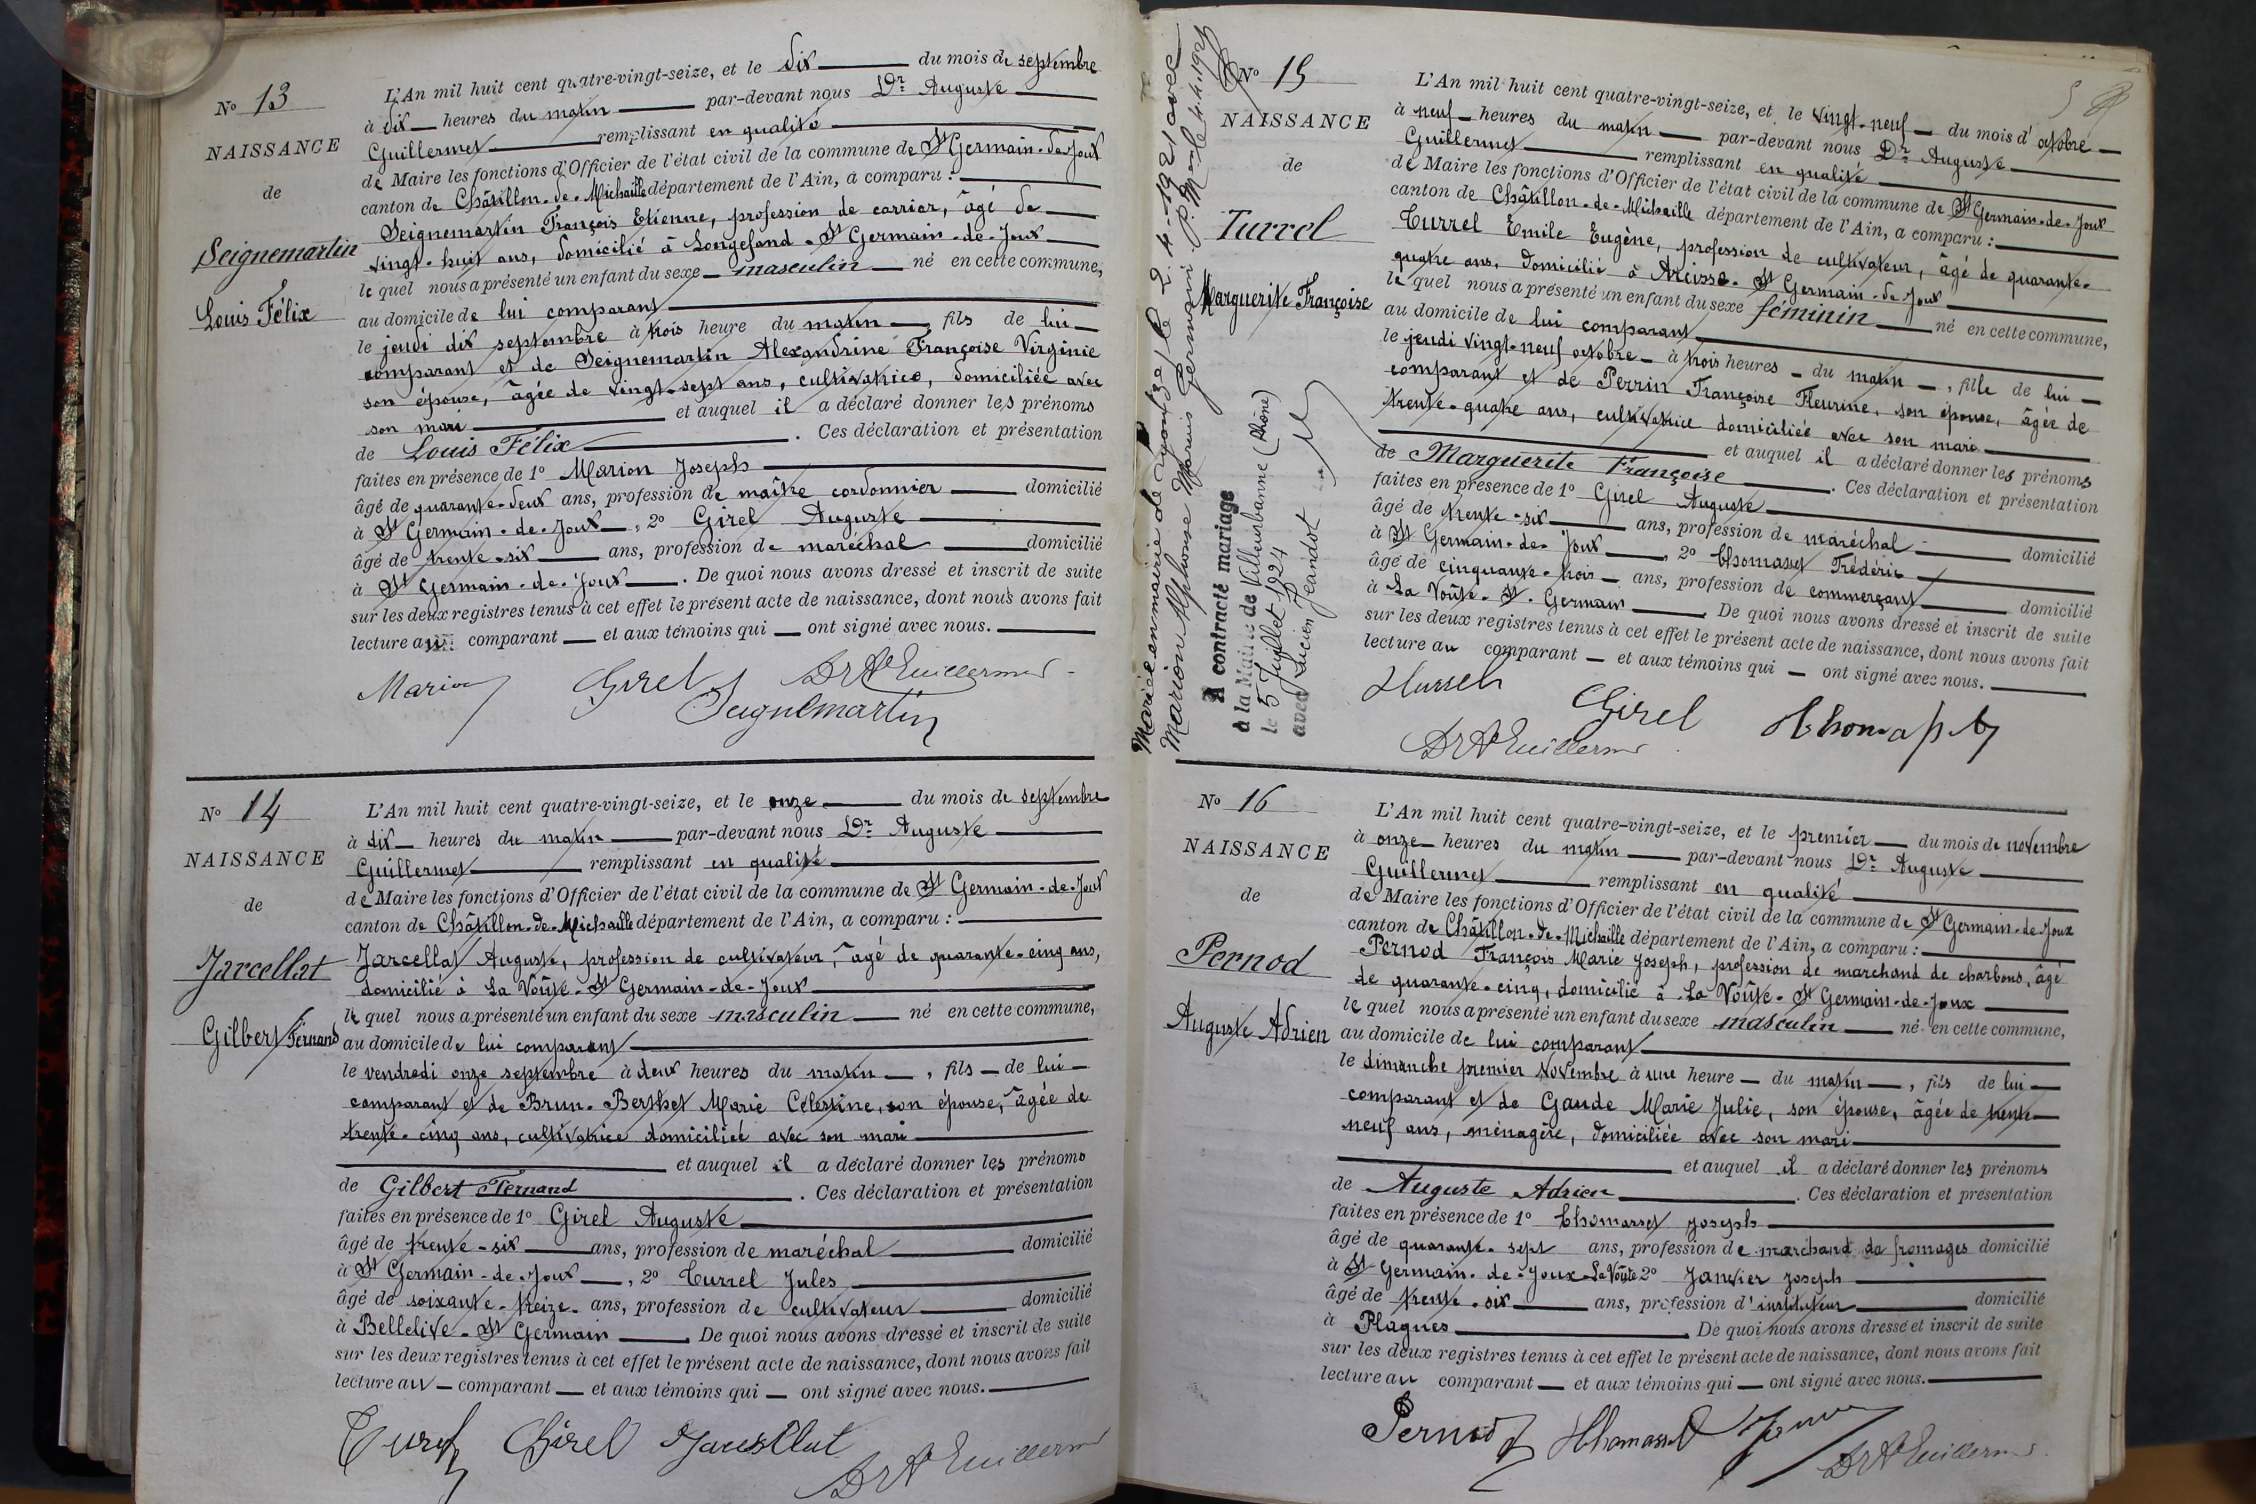 No 13
NAISSANCE
de
Seignemartin
Louis Félix
L'An mil huit cent quatre-vingt-seize, et le dix du mois de septembre
à dix heures du matin par-devant nous Dr Auguste
Guillermet remplissant en qualité
de Maire les fonctions d'Officier de l'état civil de la commune de St Germain-de-Joux
canton de Châtillon-de-Michaille département de l'Ain, a comparu :
Seignemartin François Etienne, profession de carrier, âgé de
vingt-huit ans, domicilié à Longefand-St Germain-de-Joux
lequel nous a présenté un enfant du sexe masculin né en cette commune,
au domicile de lui comparant
le jeudi dix septembre à trois heure du matin, fils de lui
comparant et de Seignemartin Alexandrine Françoise Virginie
son épouse, âgée de vingt-sept ans, cultivatrice, domiciliée avec
son mari et auquel il a déclaré donner les prénoms
de Louis Félix. Ces déclaration et présentation
faites en présence de 1° Marion Joseph
âgé de quarante-deux ans, profession de maître cordonnier domicilié
à St Germain-de-Joux, 2° Girel Auguste
âgé de trente-six ans, profession de maréchal domicilié
à St Germain-de-Joux. De quoi nous avons dressé et inscrit de suite
sur les deux registres tenus à cet effet le présent acte de naissance, dont nous avons fait
lecture au comparant et aux témoins qui ont signé avec nous.
Marion Girel Dr Ate Guillermet
Seignemartin
No 14
NAISSANCE
de
Jarcellat
Gilbert Fernand
L'An mil huit cent quatre-vingt-seize, et le onze du mois de septembre
à dix heures du matin par-devant nous Dr Auguste
Guillermet remplissant en qualité
de Maire les fonctions d'Officier de l'état civil de la commune de St Germain-de-Joux
canton de Châtillon-de-Michaille département de l'Ain, a comparu :
Jarcellat Auguste, profession de cultivateur, âgé de quarante-cinq ans,
domicilié à La Voûte-St Germain-de-Joux
lequel nous a présenté un enfant du sexe masculin né en cette commune,
au domicile de lui comparant
le vendredi onze septembre à deux heures du matin, fils de lui
comparant et de Brun-Berthet Marie Célestine, son épouse, âgée de
trente-cinq ans, cultivatrice domiciliée avec son mari
et auquel il a déclaré donner les prénoms
de Gilbert Fernand. Ces déclaration et présentation
faites en présence de 1° Girel Auguste
âgé de trente-six ans, profession de maréchal domicilié
à St Germain-de-Joux, 2° Turrel Jules
âgé de soixante-treize ans, profession de cultivateur domicilié
à Bellelive-St Germain. De quoi nous avons dressé et inscrit de suite
sur les deux registres tenus à cet effet le présent acte de naissance, dont nous avons fait
lecture au comparant et aux témoins qui ont signé avec nous.
Turrel Girel Jarcellat
Dr Ate Guillermet
No 15
NAISSANCE
de
Turrel
Marguerite Françoise
Mariée en mairie de le 2.4.1921 avec
Marion Alphonse Marius Germain
A contracté mariage
à la Mairie de Villeurbanne (Rhône)
le 5 Juillet 1924
avec Lucien Jeandot
L'An mil huit cent quatre-vingt-seize, et le vingt-neuf du mois d'octobre
à neuf heures du matin par-devant nous Dr Auguste
Guillermet remplissant en qualité
de Maire les fonctions d'Officier de l'état civil de la commune de St Germain-de-Joux
canton de Châtillon-de-Michaille département de l'Ain, a comparu :
Turrel Emile Eugène, profession de cultivateur, âgé de quarante-
quatre ans, domicilié à St Germain-de-Joux
lequel nous a présenté un enfant du sexe féminin né en cette commune,
au domicile de lui comparant
le jeudi vingt-neuf octobre à trois heures du matin, fille de lui
comparant et de Perrin Françoise Fleurine, son épouse, âgée de
trente-quatre ans, cultivatrice domiciliée avec son mari
et auquel il a déclaré donner les prénoms
de Marguerite Françoise. Ces déclaration et présentation
faites en présence de 1° Girel Auguste
âgé de trente-six ans, profession de maréchal domicilié
à St Germain-de-Joux, 2° Thomasset Frédéric
âgé de cinquante-trois ans, profession de commerçant domicilié
à La Voûte-St-Germain De quoi nous avons dressé et inscrit de suite
sur les deux registres tenus à cet effet le présent acte de naissance, dont nous avons fait
lecture au comparant et aux témoins qui ont signé avec nous.
Girel
Dr Ate Guillermet
No 16
NAISSANCE
de
Pernod
Auguste Adrien
L'An mil huit cent quatre-vingt-seize, et le premier du mois de novembre
à onze heures du matin par-devant nous Dr Auguste
Guillermet remplissant en qualité
de Maire les fonctions d'Officier de l'état civil de la commune de St Germain-de-Joux
canton de Châtillon-de-Michaille département de l'Ain, a comparu :
Pernod François Marie Joseph, profession de marchand de charbons, âgé
de quarante-cinq, domicilié à La Voûte-St Germain-de-Joux
lequel nous a présenté un enfant du sexe masculin né en cette commune,
au domicile de lui comparant
le dimanche premier Novembre à une heure du matin, fils de lui
comparant et de Gaude Marie Julie, son épouse, âgée de trente
neuf ans, ménagère, domiciliée avec son mari
et auquel il a déclaré donner les prénoms
de Auguste Adrien. Ces déclaration et présentation
faites en présence de 1° Thomasset Joseph
âgé de quarante-sept ans, profession de marchand de fromages domicilié
à St Germain-de-Joux-La Voûte 2° Janvier Joseph
âgé de trente-six ans, profession d'instituteur domicilié
à Plagnes. De quoi nous avons dressé et inscrit de suite
sur les deux registres tenus à cet effet le présent acte de naissance, dont nous avons fait
lecture au comparant et aux témoins qui ont signé avec nous.
Pernod Thomasset
Dr Ate Guillermet